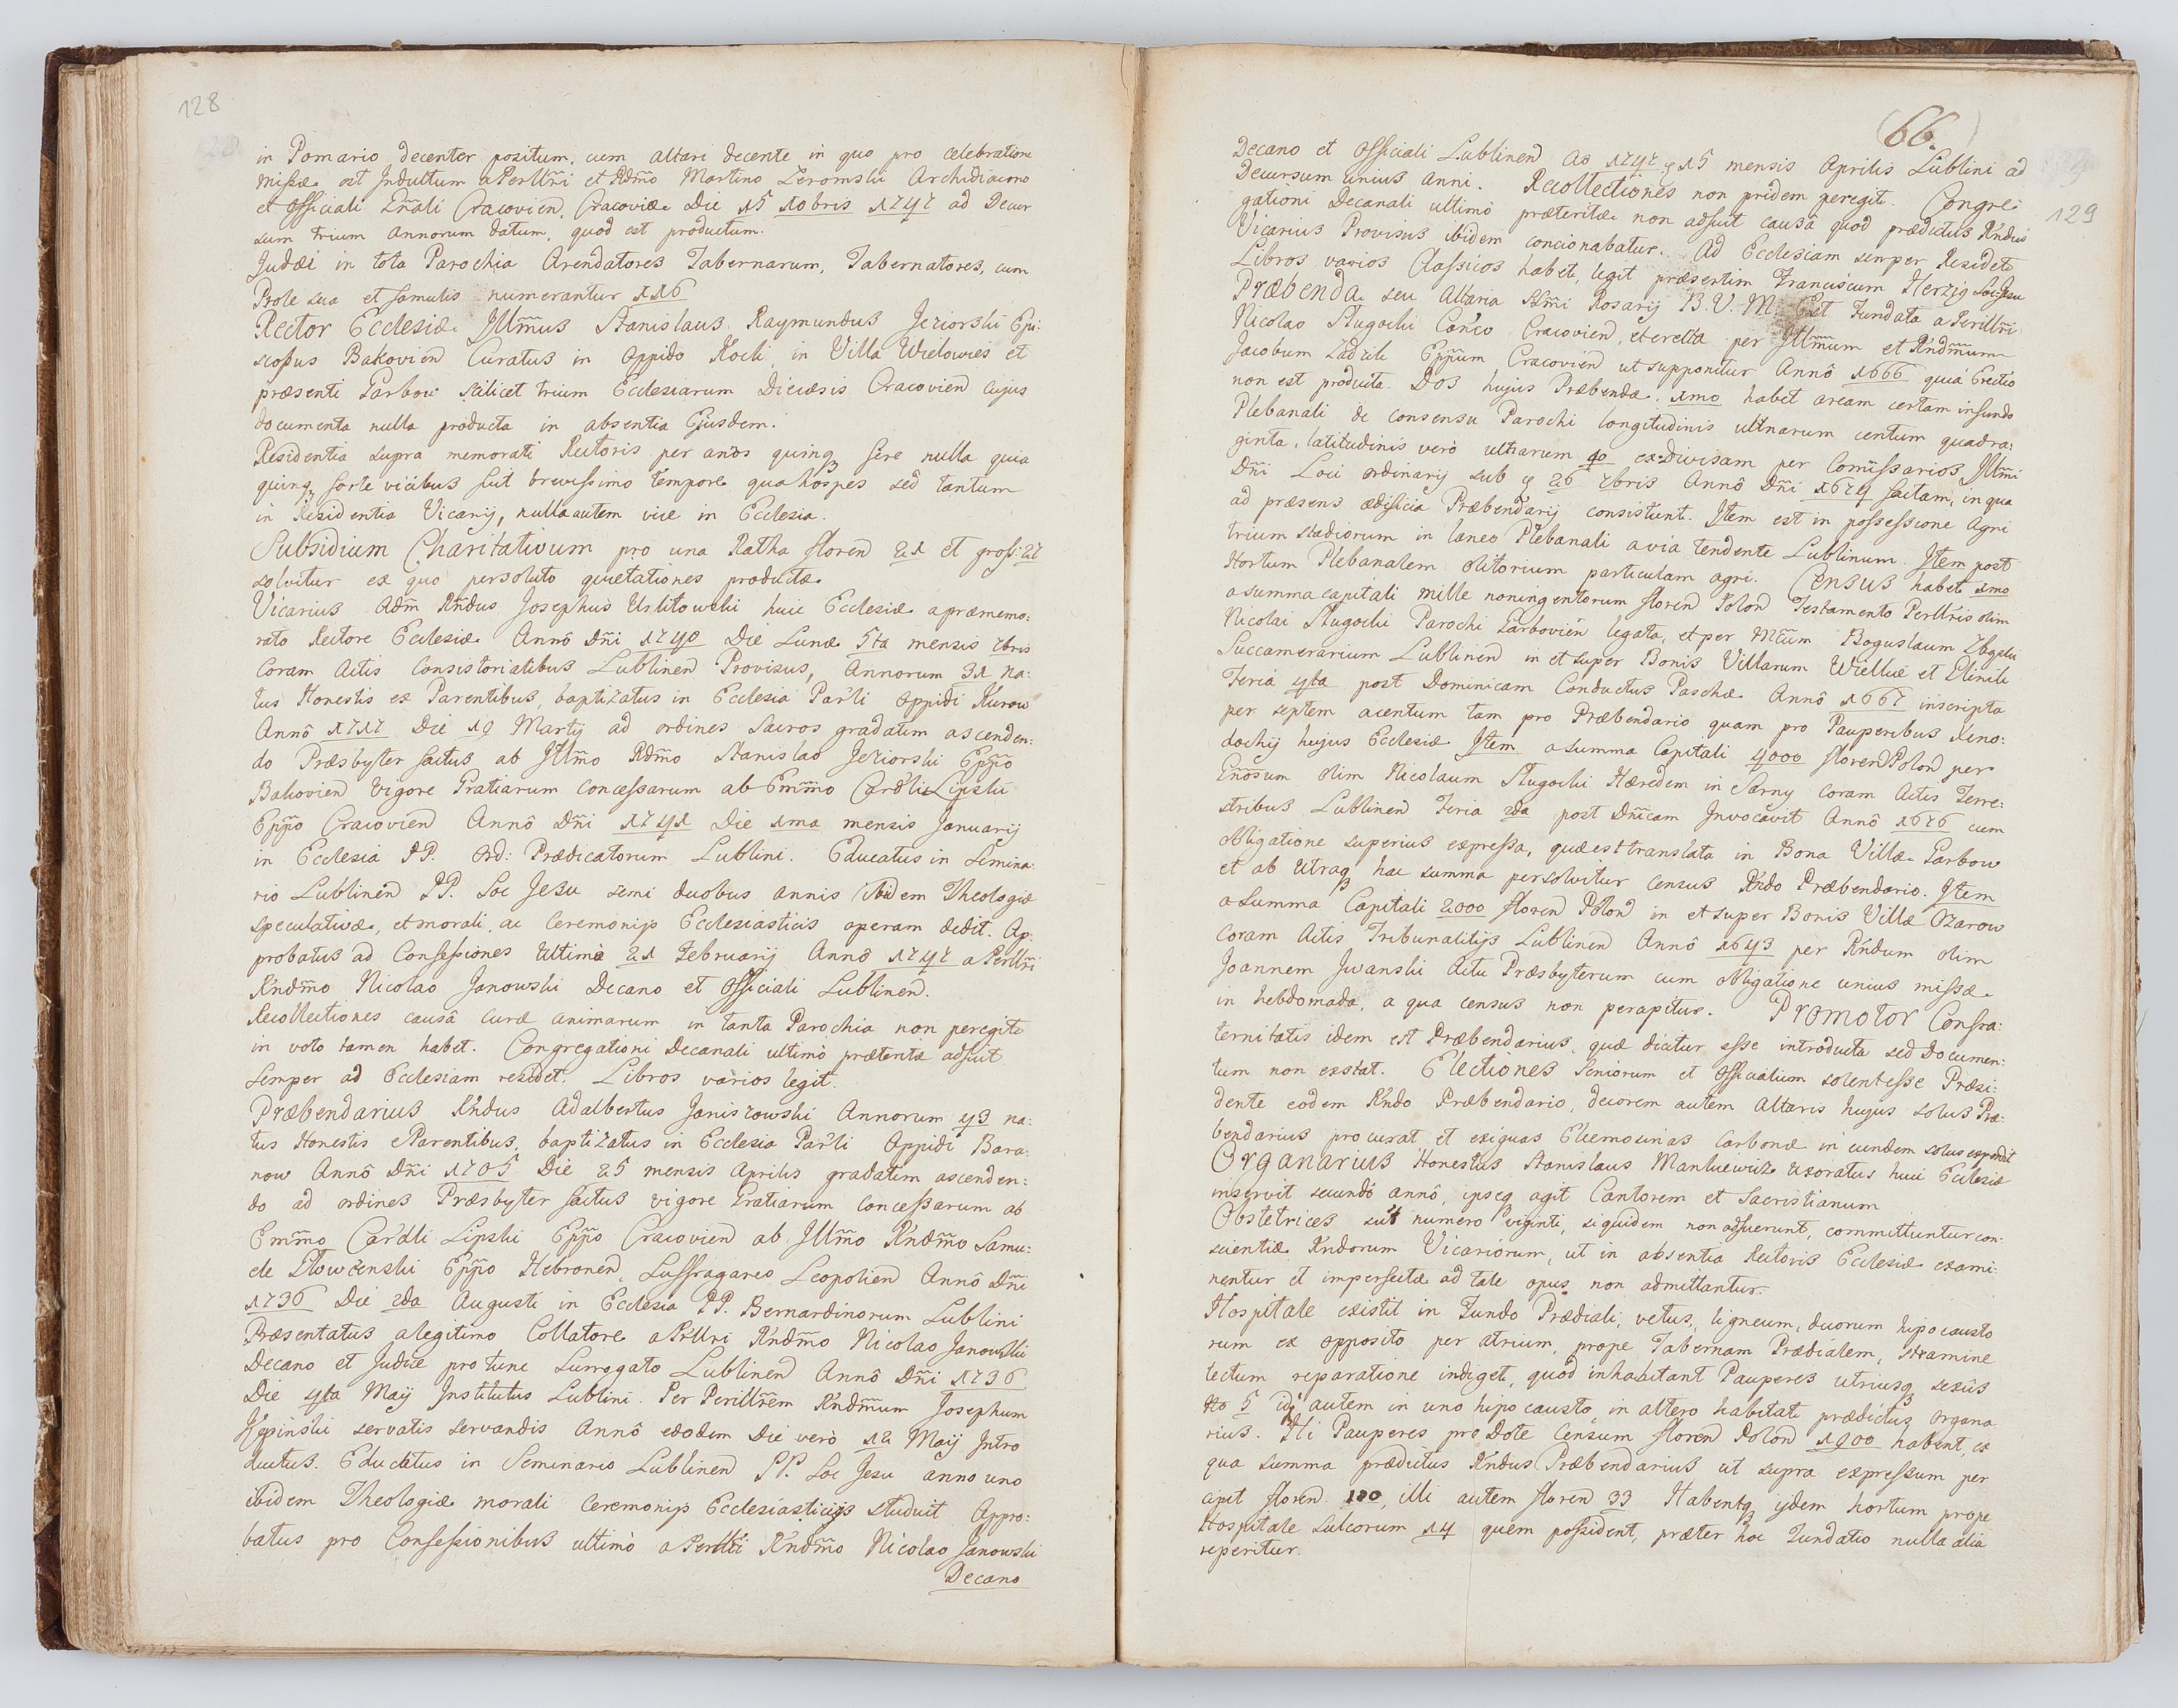 128
in Pomario decenter positum, cum altari decente in quo pro celebratione
Missæ est Indultum a Perllri et Rdmo Martino Zeromski Archidiacono
et Officiali Gnali Cracovien, Cracoviæ Die 15 10bris 1747 ad Decur
sum trium annorum datum, quod est productum.
Judæi in tota Parochia Arendatores Tabernarum, Tabernatores, cum
Prole sua et famulis numerantur 116
Rector Ecclesiæ Illmus Stanislaus Raymundus Jeziorski Epi:
scopus Bakovien Curatus in Oppido Kock, in Villa Wielowies et
præsenti Garbow scilicet trium Ecclesiarum Diæcesis Cracovien cujus
documenta nulla producta in absentia Ejusdem.
Residentia supra memorati Rectoris per anos quinq fere nulla quia
quinq forte vicibus fuit brevissimo tempore qua hospes sed tantum
in Residentia Vicarij, nulla autem vice in Ecclesia.
Subsidium Charitativum pro una Ratha floren 21 et gross: 27
solvitur ex quo persoluto quietationes productæ
Vicarius Adm Rndus Josephus Uslitowski huic Ecclesiæ a præmemo:
rato Rectore Ecclesiæ Annô Dñi 1740 Die Lunæ 5ta mensis 7bris
Coram Actis Consistorialibus Lublinen Provisus, Annorum 31 Na:
tus Honestis ex Parentibus, baptizatus in Ecclesia Parli Oppidi Kurow
Annô 1717 Die 19 Martij ad ordines sacros gradatim ascenden:
do Præsbyter factus ab Illmo Rdmo Stanislao Jeziorski Eppo
Bakovien Vigore Gratiarum concessarum ab Emmo Cardli Lipski
Eppo Cracovien Annô Dñi 1741 Die 1ma mensis Januarij
in Ecclesia PP. Ord: Prædicatorum Lublini. Educatus in Semina
rio Lublinen PP. Soc Jesu semi duobus annis ibidem Theologiæ
speculativæ, et morali, ac Ceremonijs Ecclesiasticis operam dedit. Ap:
probatus ad Confessiones Ultimô 21 Februarij Annô 1747 a Perllri
Rndmo Nicolao Janowski Decano et Officiali Lublinen.
Recollectiones causâ curæ animarum in tanta Parochia non peregit
in voto tamen habet. Congregationi Decanali ultimò præteritæ adfuit
semper ad Ecclesiam residet. Libros varios legit.
Præbendarius Rndus Adalbertus Janiszowski Annorum 43 na:
tus Honestis Parentibus, baptizatus in Ecclesia Parli Oppidi Bara:
now Annô Dñi 1705 Die 25 mensis Aprilis gradatim ascenden:
do ad ordines Præsbyter factus vigore Gratiarum concessarum ab
Emmo Cardli Lipski Eppo Cracovien ab Illmo Rndmo Samu:
ele Głowczenski Eppo Hebronen, Suffraganeo Leopolien Annô Dñi
1736 Die 2da Augusti in Ecclesia PP. Bernardinorum Lublini
Præsentatus a legitimo Collatore a Prllri Rndmo Nicolao Janowski
Decano et Judice pro tunc Surrogato Lublinen Annô Dñi 1736
Die 4ta Maij Institutus Lublini. Per Perillrem Rndmum Josephum
servatis servandis Annô eodem Die verò 12 Maij Intro
ductus. Educatus in Seminario Lublinen PP. Soc Jesu anno uno
ibidem Theologiæ morali Ceremonijs Ecclesiasticis studuit Appro:
batus pro Confessionibus ultimò a Perllri Rndmo Nicolao Janowski
Decano
66.
129
Decano et Officiali Lublinen Ao 1747 15 mensis Aprilis Lublini ad
Decursum unius anni. Recollectiones non pridem peregit. Congre:
gationi Decanali ultimò præteritæ non adfuit causâ quod prædictus Rndus
Vicarius Provisus ibidem concionabatur. Ad Ecclesiam semper Residet
Libros varios Classicos habet, legit præsertim Franciscum Herzig Soc: Jesu
Præbenda seu Altaria SSmi Rosarij B.V.M. Est Fundata a Perillri
Nicolao Długocki Can'co Cracovien, et erecta per Illmum et Rndmum
Jacobum Zadzik Eppum Cracovien ut supponitur Annô 1666 quia Erectio
non est producta. Dos hujus Præbendæ. 1mo habet aream certam in fundo
Plebanali de consensu Parochi longitudinis ulnarum centum quadra:
ginta, latitudinis verò ulnarum 40 ex divisam per Comissarios Illmi
Dñi Loci ordinarij sub 26 7bris Annô Dñi 1674 factam, in qua
ad præsens ædificia Præbendarij consistunt. Item est in possessione Agri
trium stadiorum in laneo Plebanali a via tendente Lublinum. Item post
Hortum Plebanalem olitorium particulam agri. Census habet 1mo
a summa capitali mille noningentorum floren Polon Testamento Perllris olim
Nicolai Długocki Parochi Garbovien legata, et per Boguslaum
Succamerarium Lublinen in et super Bonis Villarum Wielkie et
Feria 4ta post Dominicam Conductus Paschæ Annô 1667 inscripta
per septem a centum tam pro Præbendario quam pro Pauperibus Xeno:
dochij hujus Ecclesiæ Item a summa Capitali 4000 floren Polon per
Gnosum olim Nicolaum Długocki Hæredem in Sarny coram Actis Terre:
stribus Lublinen Feria 2da post Dñicam Invocavit Annô 1676 cum
obligatione superius expressa, quæ est translata in Bona Villæ Garbow
et ab utraq hac summa persolvitur census Rndo Præbendario. Item
a summa Capitali 2000 floren Polon in et super Bonis Villæ Ozarow
coram Actis Tribunalitijs Lublinen Annô 1643 per Rndum olim
Joannem Iwanski Actu Præsbyterum cum obligatione unius missæ
in hebdomada, a qua census non percipitur. Promotor Confra:
ternitatis idem est Præbendarius, quæ dicitur esse introducta sed Documen:
tum non exstat. Electiones Seniorum et Officialium solent esse Præsi:
dente eodem Rndo Præbendario, decorem autem Altaris hujus solus Præ:
bendarius procurat et exiguas Elemosinas Carbonæ in eundem solus expendit
Organarius Honestus Stanislaus Mankiewicz uxoratus huic Ecclesiæ
inservit secundô annô, ipseq agit Cantorem et Sacristianum
Obstetrices sut numero viginti, siquidem non adfuerunt, committuntur con:
scientiæ Rndorum Vicariorum, ut in absentia Rectoris Ecclesiæ exami:
nentur et imperfectæ ad tale opus non admittantur.
Hospitale existit in Fundo Prædiali, vetus, ligneum, duorum hipocausto
rum ex opposito per atrium, prope Tabernam Prædialem, stramine
tectum reparatione indiget, quod inhabitant Pauperes utriusq sexûs
No 5 idq autem in uno hipocausto, in altero habitat prædictus Organa
rius. Hi Pauperes pro Dote Censum floren Polon 1900 habent, ex
qua summa prædictus Rndus Præbendarius ut supra expressum per
cipit floren 100, illi autem floren 33 Habentq ijdem hortum prope
Hospitale Sulcorum 14 quem possident, præter hoc Fundatio nulla alia
reperitur.